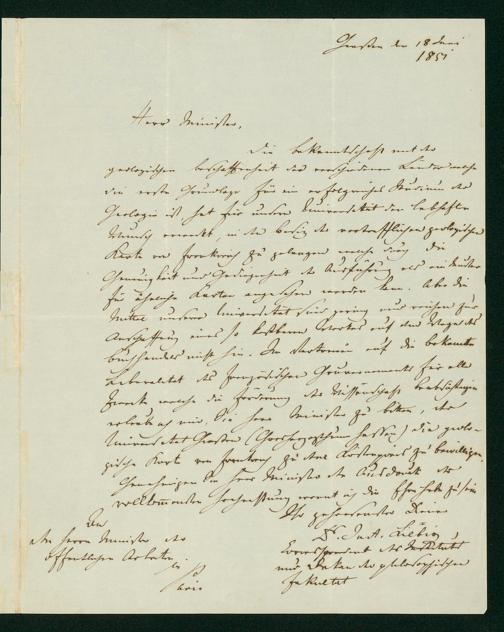 Giessen den 18 Juni
1851
Herr Minister,
Die Bekanntschaft mit der
geologischen Beschaffenheit der verschiedenen Länder welche
die erste Grundlage für ein erfolgreiches Studium der
Geologie ist hat für unsere Universität den lebhaften
Wunsch erweckt, in den Besitz der vortrefflichen geologischen
Karte von Frankreich zu gelangen welche durch die
Genauigkeit und Gediegenheit der Ausführung als ein Muster
für ähnliche Karten angesehen werden kann. Aber die
Mittel unserer Universität sind gering und reichen zur
Anschaffung eines so kostbaren Werkes auf dem Wege des
Buchhandels nicht hin. Im Vertrauen auf die bekannte
Liberalität des französischen Gouvernements für alle
Zwecke welche die Förderung der Wissenschaft beabsichtigen
erlaube ich mir, Sie Herr Minister zu bitten, der
Universität Giessen (Grossherzogthum Hessen) die geolo-
gische Karte von Frankreich zu bewilligen.
Genehmigen Sie Herr Minister den Ausdruck der
vollkommensten Hochachtung womit ich die Ehre habe zu sein
Ihr gehorsamster Diener
Dr. Just. Liebig
Correspondent des Instituts
und Dekan der philosophischen
Fakultät
An
den Herrn Minister der
öffentlichen Arbeiten
Paris